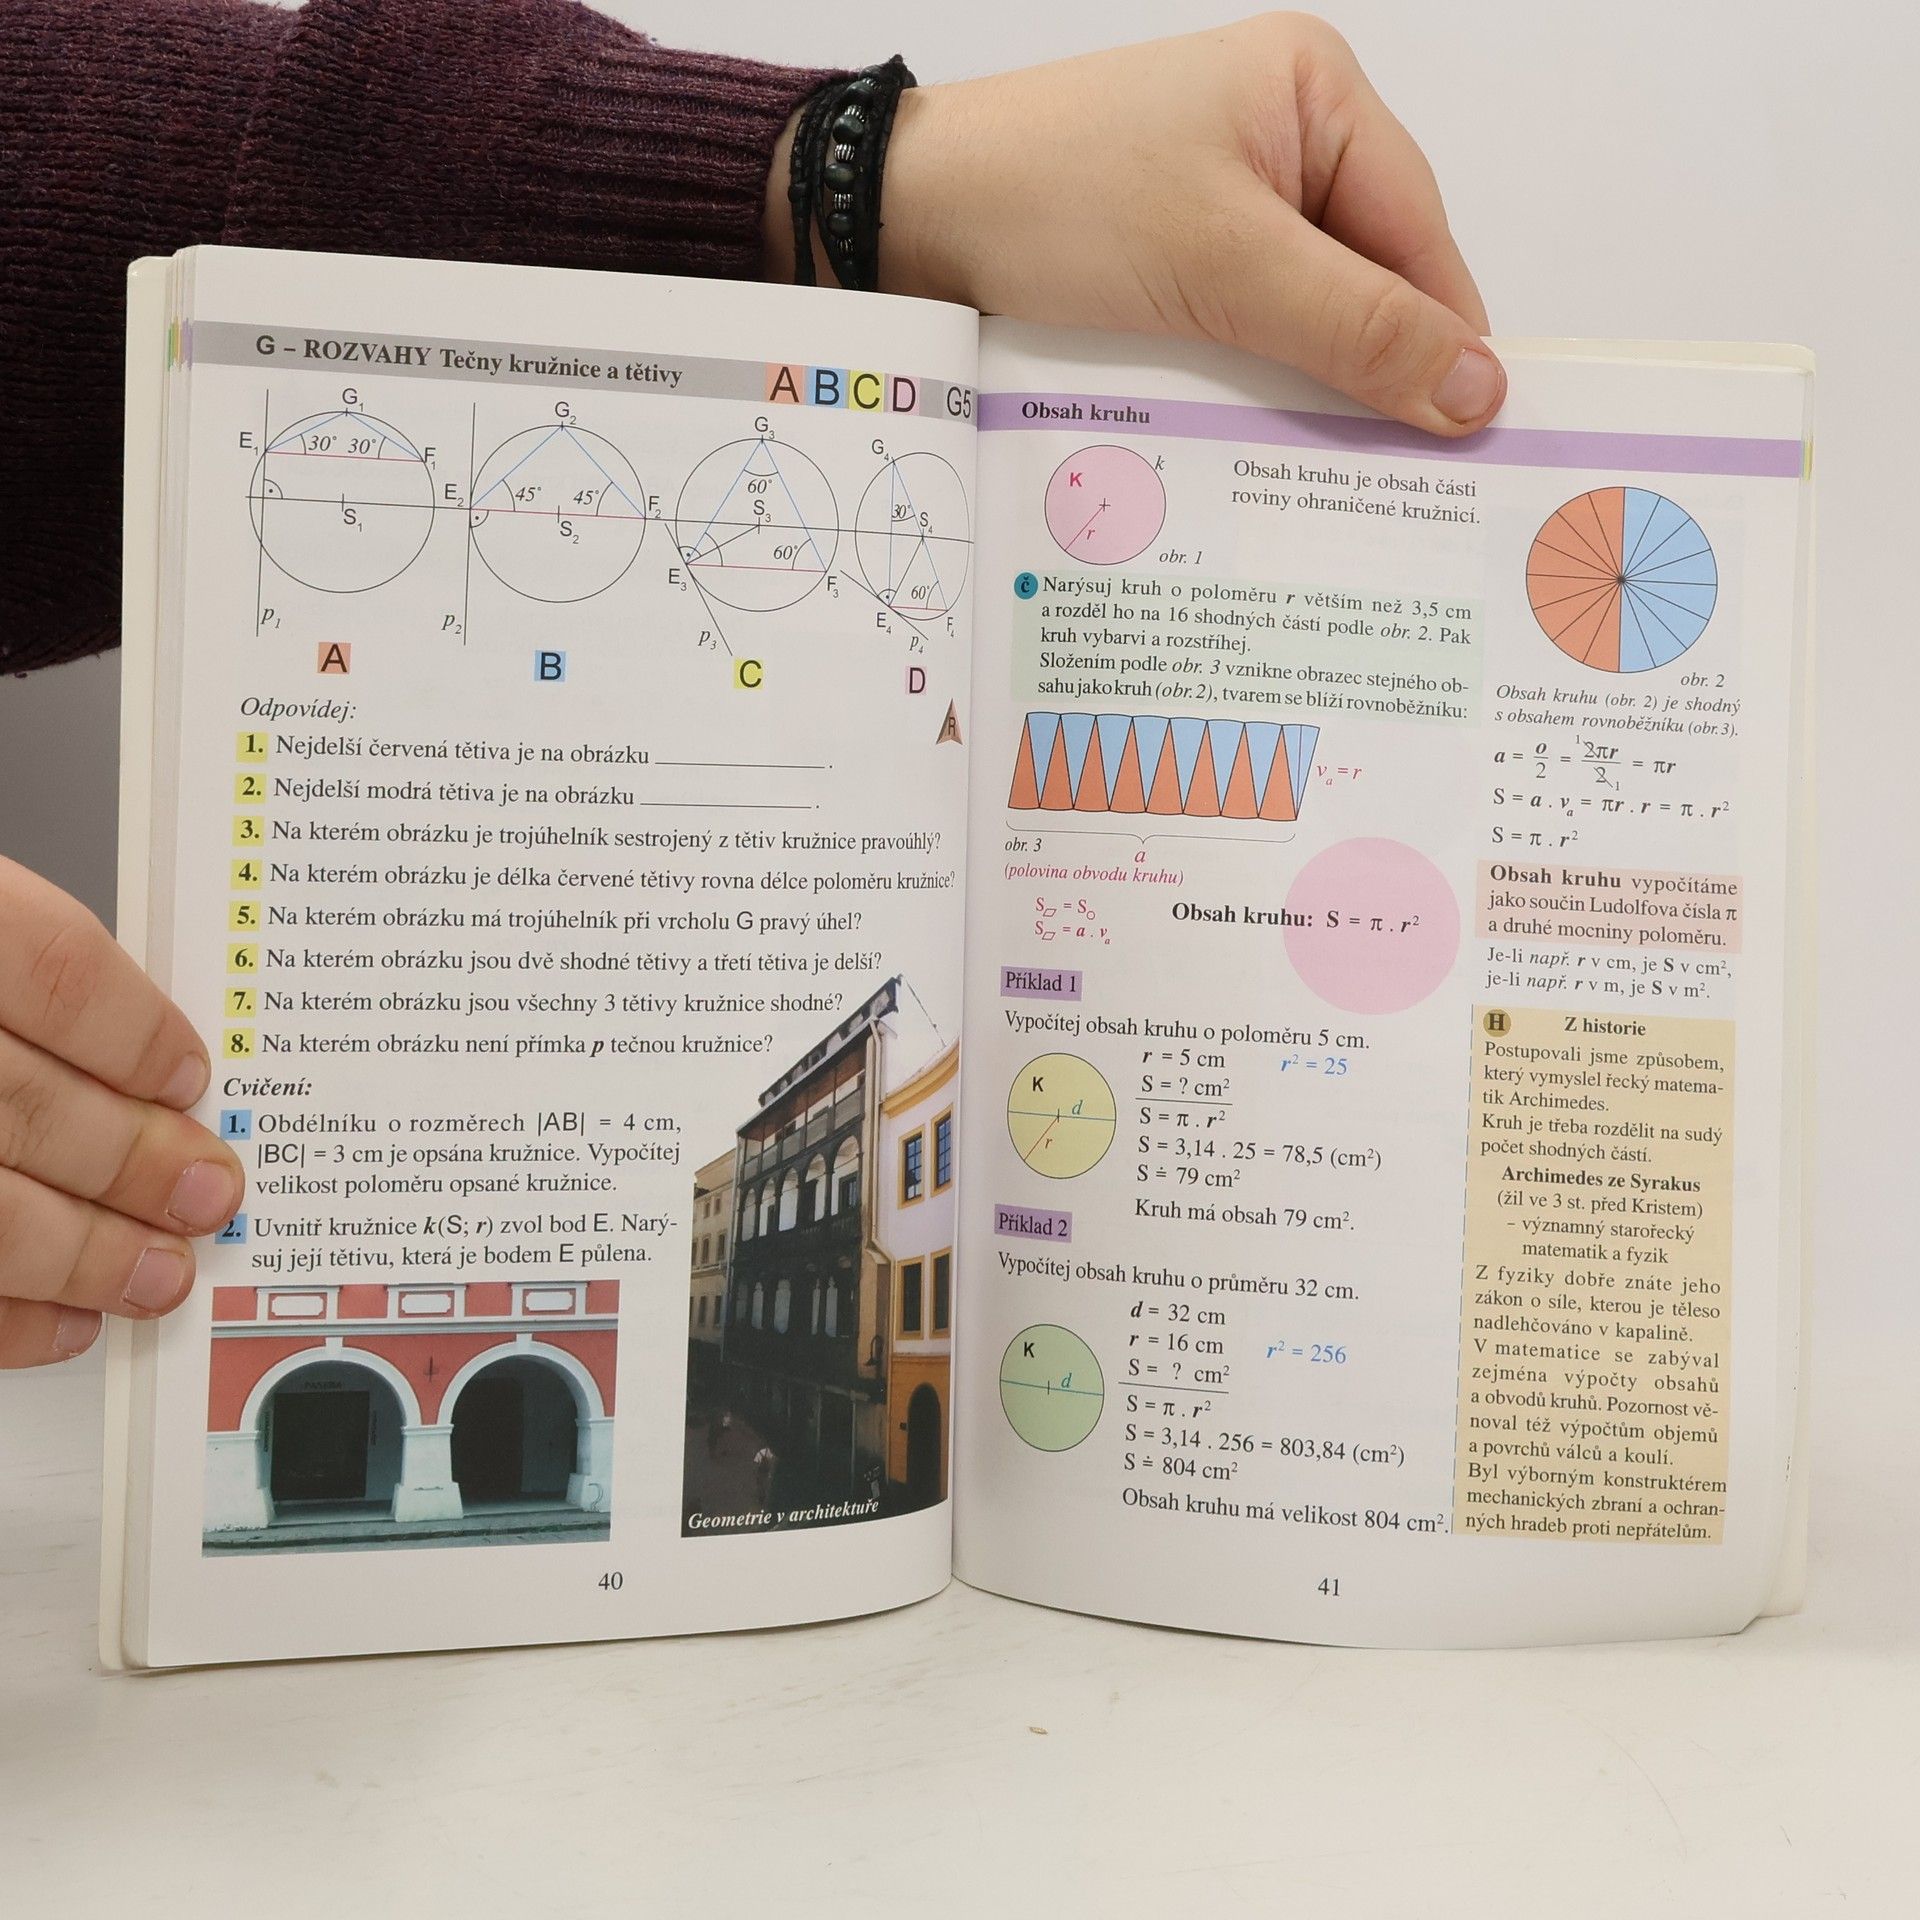 G – ROZVAHY Tečny kružnice a tětivy
A B C D G5
G₁
E₁ 30° 30° F₁
S₁
p₁
A
G₂
E₂ 45° 45° F₂
S₂
p₂
B
G₃
60°
S₃
60°
E₃ F₃
p₃
C
G₄
30° S₄
60°
E₄ F₄
p₄
D
Odpovídej:
R
1. Nejdelší červená tětiva je na obrázku ____________.
2. Nejdelší modrá tětiva je na obrázku ____________.
3. Na kterém obrázku je trojúhelník sestrojený z tětiv kružnice pravoúhlý?
4. Na kterém obrázku je délka červené tětivy rovna délce poloměru kružnice?
5. Na kterém obrázku má trojúhelník při vrcholu G pravý úhel?
6. Na kterém obrázku jsou dvě shodné tětivy a třetí tětiva je delší?
7. Na kterém obrázku jsou všechny 3 tětivy kružnice shodné?
8. Na kterém obrázku není přímka p tečnou kružnice?
Cvičení:
1. Obdélníku o rozměrech |AB| = 4 cm,
|BC| = 3 cm je opsána kružnice. Vypočítej
velikost poloměru opsané kružnice.
2. Uvnitř kružnice k(S; r) zvol bod E. Narý-
suj její tětivu, která je bodem E půlena.
Geometrie v architektuře
40
Obsah kruhu
K
k
r
obr. 1
Obsah kruhu je obsah části
roviny ohraničené kružnicí.
č Narýsuj kruh o poloměru r větším než 3,5 cm
a rozděl ho na 16 shodných částí podle obr. 2. Pak
kruh vybarvi a rozstříhej.
Složením podle obr. 3 vznikne obrazec stejného ob-
sahu jako kruh (obr. 2), tvarem se blíží rovnoběžníku:
vₐ = r
obr. 3
a
(polovina obvodu kruhu)
S▱ = S○
S▱ = a . vₐ
Obsah kruhu: S = π . r²
Příklad 1
Vypočítej obsah kruhu o poloměru 5 cm.
K
d
r
r = 5 cm r² = 25
S = ? cm²
S = π . r²
S = 3,14 . 25 = 78,5 (cm²)
S ≐ 79 cm²
Kruh má obsah 79 cm².
Příklad 2
Vypočítej obsah kruhu o průměru 32 cm.
K
d
d = 32 cm
r = 16 cm r² = 256
S = ? cm²
S = π . r²
S = 3,14 . 256 = 803,84 (cm²)
S ≐ 804 cm²
Obsah kruhu má velikost 804 cm².
obr. 2
Obsah kruhu (obr. 2) je shodný
s obsahem rovnoběžníku (obr. 3).
a = o/2 = ¹2πr/2₁ = πr
S = a . vₐ = πr . r = π . r²
S = π . r²
Obsah kruhu vypočítáme
jako součin Ludolfova čísla π
a druhé mocniny poloměru.
Je-li např. r v cm, je S v cm²,
je-li např. r v m, je S v m².
H Z historie
Postupovali jsme způsobem,
který vymyslel řecký matema-
tik Archimedes.
Kruh je třeba rozdělit na sudý
počet shodných částí.
Archimedes ze Syrakus
(žil ve 3 st. před Kristem)
– významný starořecký
matematik a fyzik
Z fyziky dobře znáte jeho
zákon o síle, kterou je těleso
nadlehčováno v kapalině.
V matematice se zabýval
zejména výpočty obsahů
a obvodů kruhů. Pozornost vě-
noval též výpočtům objemů
a povrchů válců a koulí.
Byl výborným konstruktérem
mechanických zbraní a ochran-
ných hradeb proti nepřátelům.
41